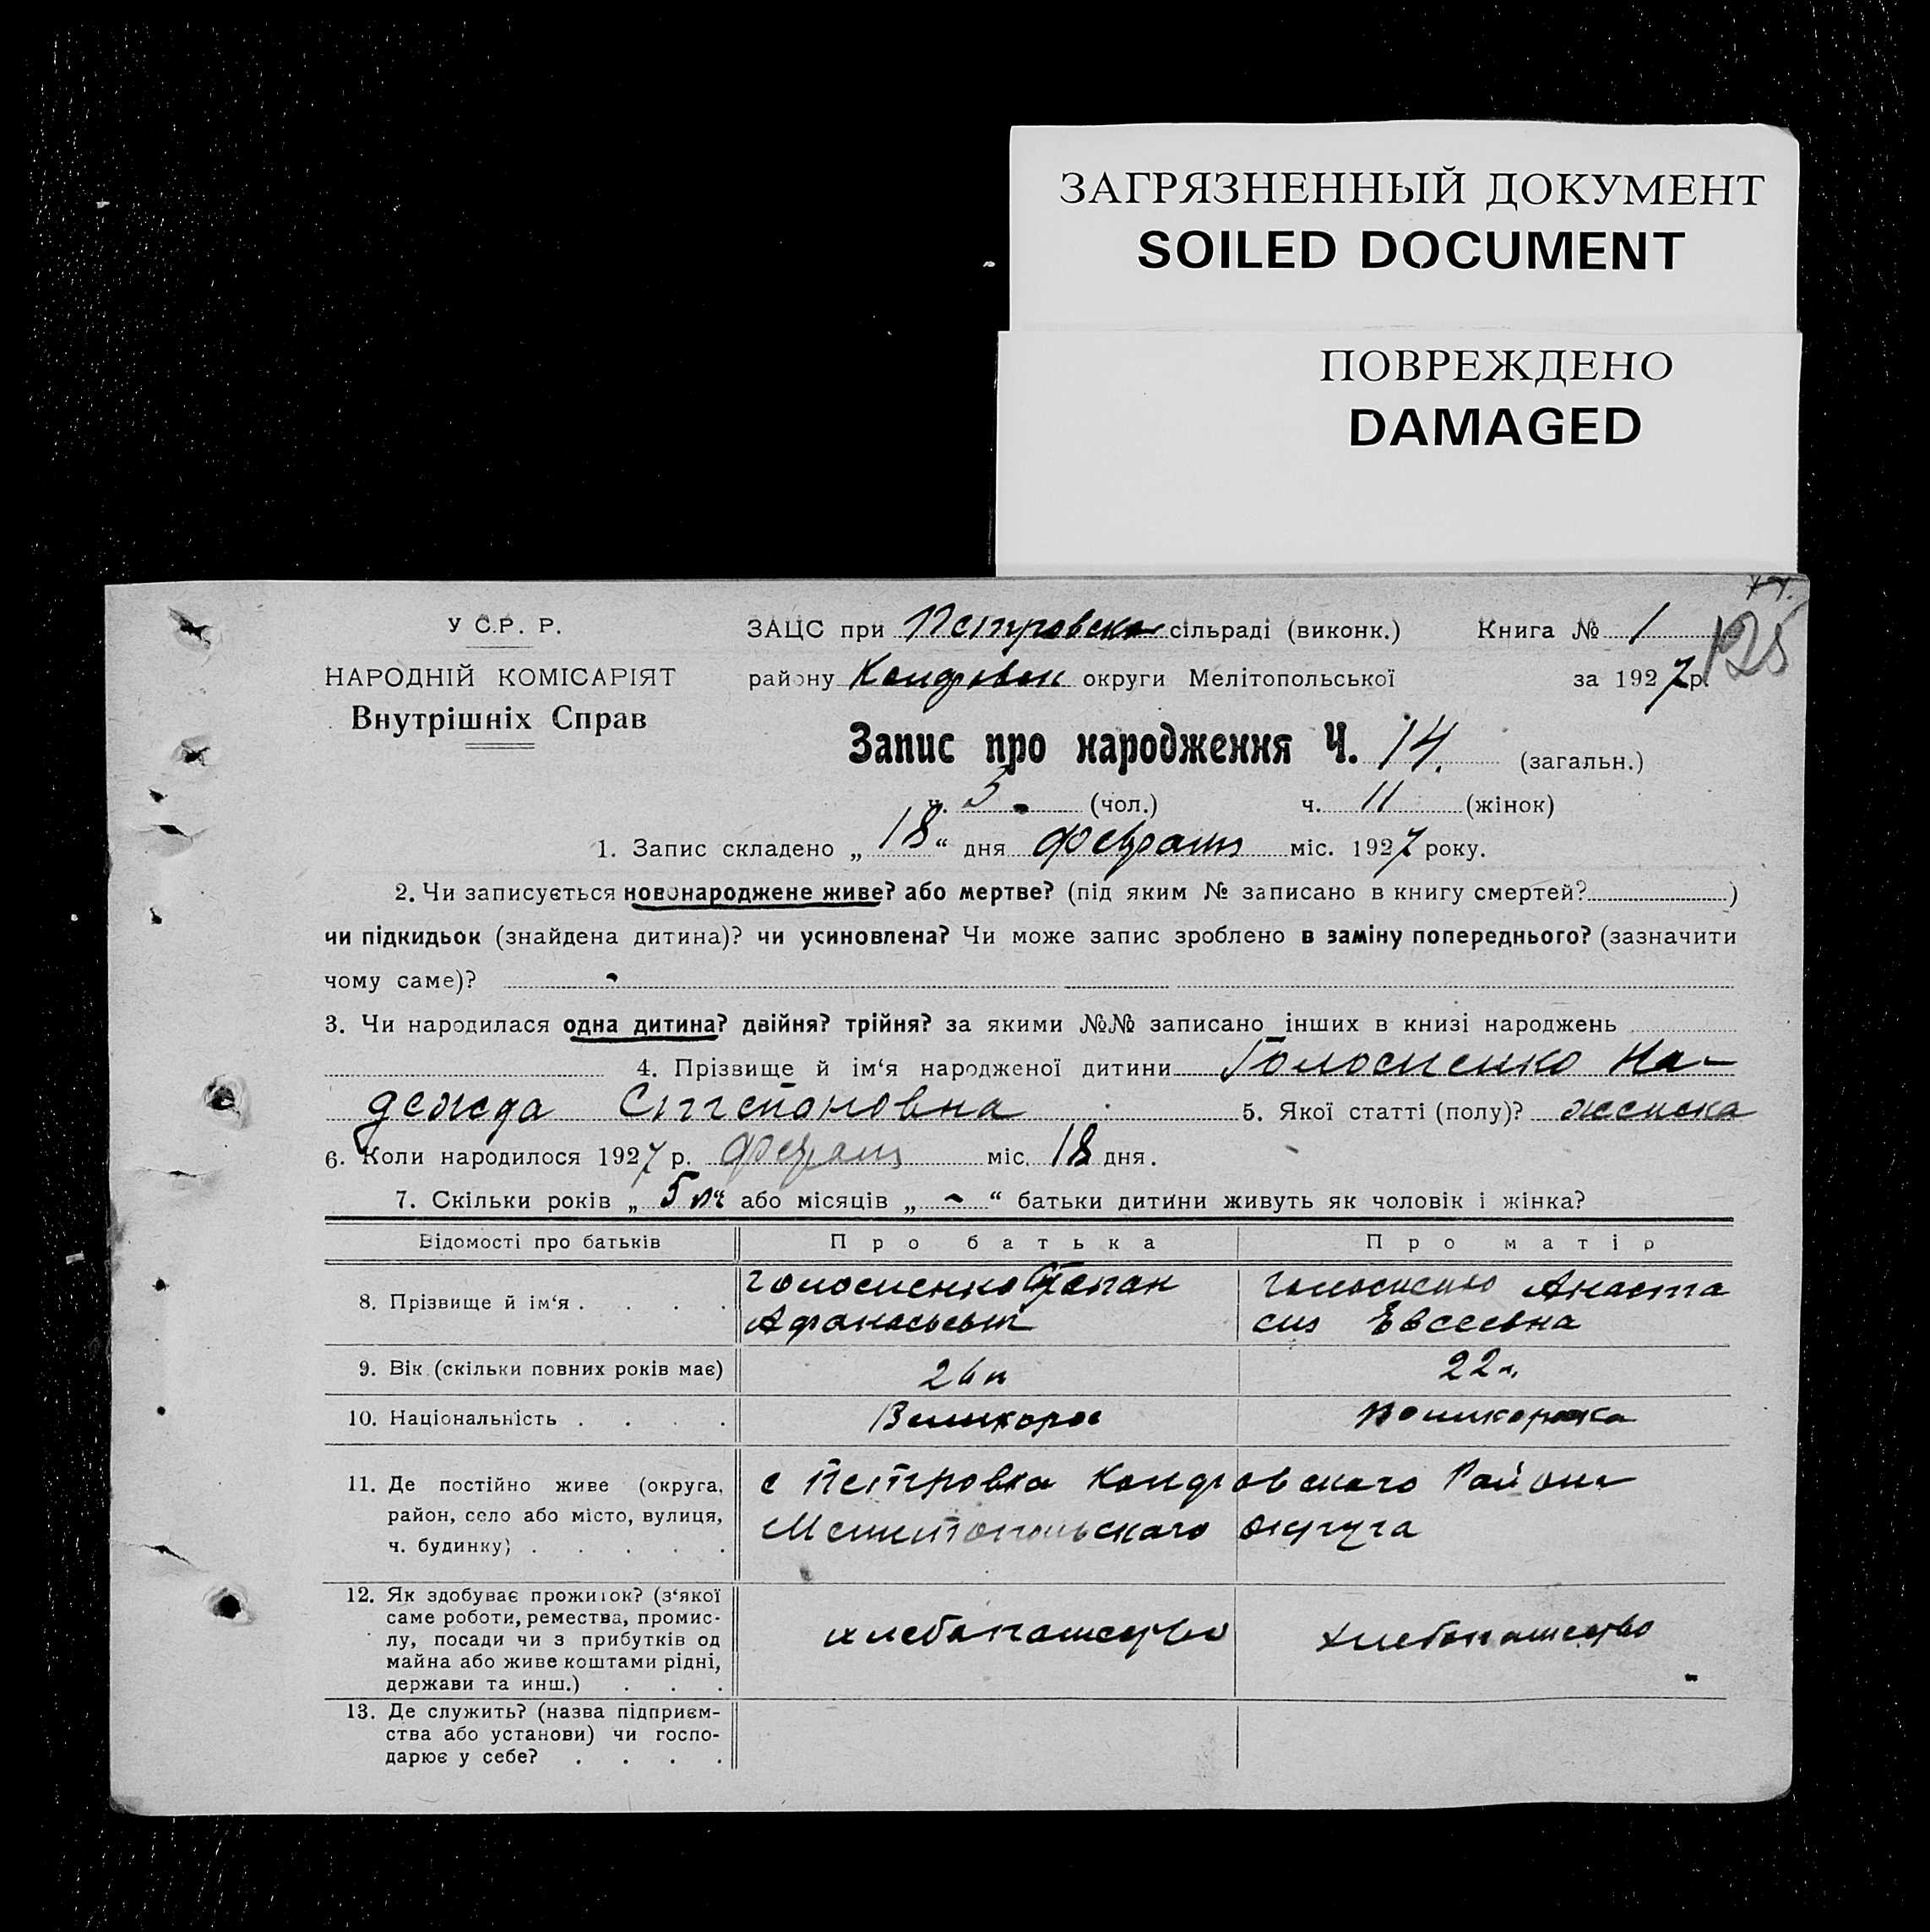 ЗАГРЯЗНЕННЫЙ ДОКУМЕНТ
SOILED DOCUMENT
ПОВРЕЖДЕНО
DAMAGED
У С.Р. Р.
НАРОДНІЙ КОМІСАРІЯТ
Внутрішніх Справ
ЗАЦС при Петровско сільраді (виконк.) Книга № 1
125
району округи Мелітопольської за 1927 р.
Запис про народження Ч. 14. (загальн.)
ч. (чол.) ч. 11 (жінок)
1. Запис складено „ 18 “ дня февраля міс. 1927 року.
2. Чи записується новонароджене живе? або мертве? (під яким № записано в книгу смертей? )
чи підкидьок (знайдена дитина)? чи усиновлена? Чи може запис зроблено в заміну попереднього? (зазначити
чому саме)?
3. Чи народилася одна дитина? двійня? трійня? за якими №№ записано інших в книзі народжень
4. Прізвище й ім‘я народженої дитини На-
дежда Степановна 5. Якої статті (полу)? женска
6. Коли народилося 1927 р. февраля міс. 18 дня.
7. Скільки років „ 5 або місяців „ - “ батьки дитини живуть як чоловік і жінка?
Відомості про батьків Про батька Про матір
8. Прізвище й ім‘я . . . . Степан Анаста
сия Евсеевна
9. Вік (скільки повних років має) 26 л 22 л.
10. Національність . . . . Великорос Великороска
11. Де постійно живе (округа, с Петровка Района
район, село або місто, вулиця, Мелитопольского округа
ч. будинку) . . . . .
12. Як здобуває прожиток? (з‘якої
саме роботи, ремества, промис-
лу, посади чи з прибутків од хлебопашество хлебопашество
майна або живе коштами рідні,
держави та инш.) . . .
13. Де служить? (назва підприєм-
ства або установи) чи госпо-
дарює у себе? . . . .